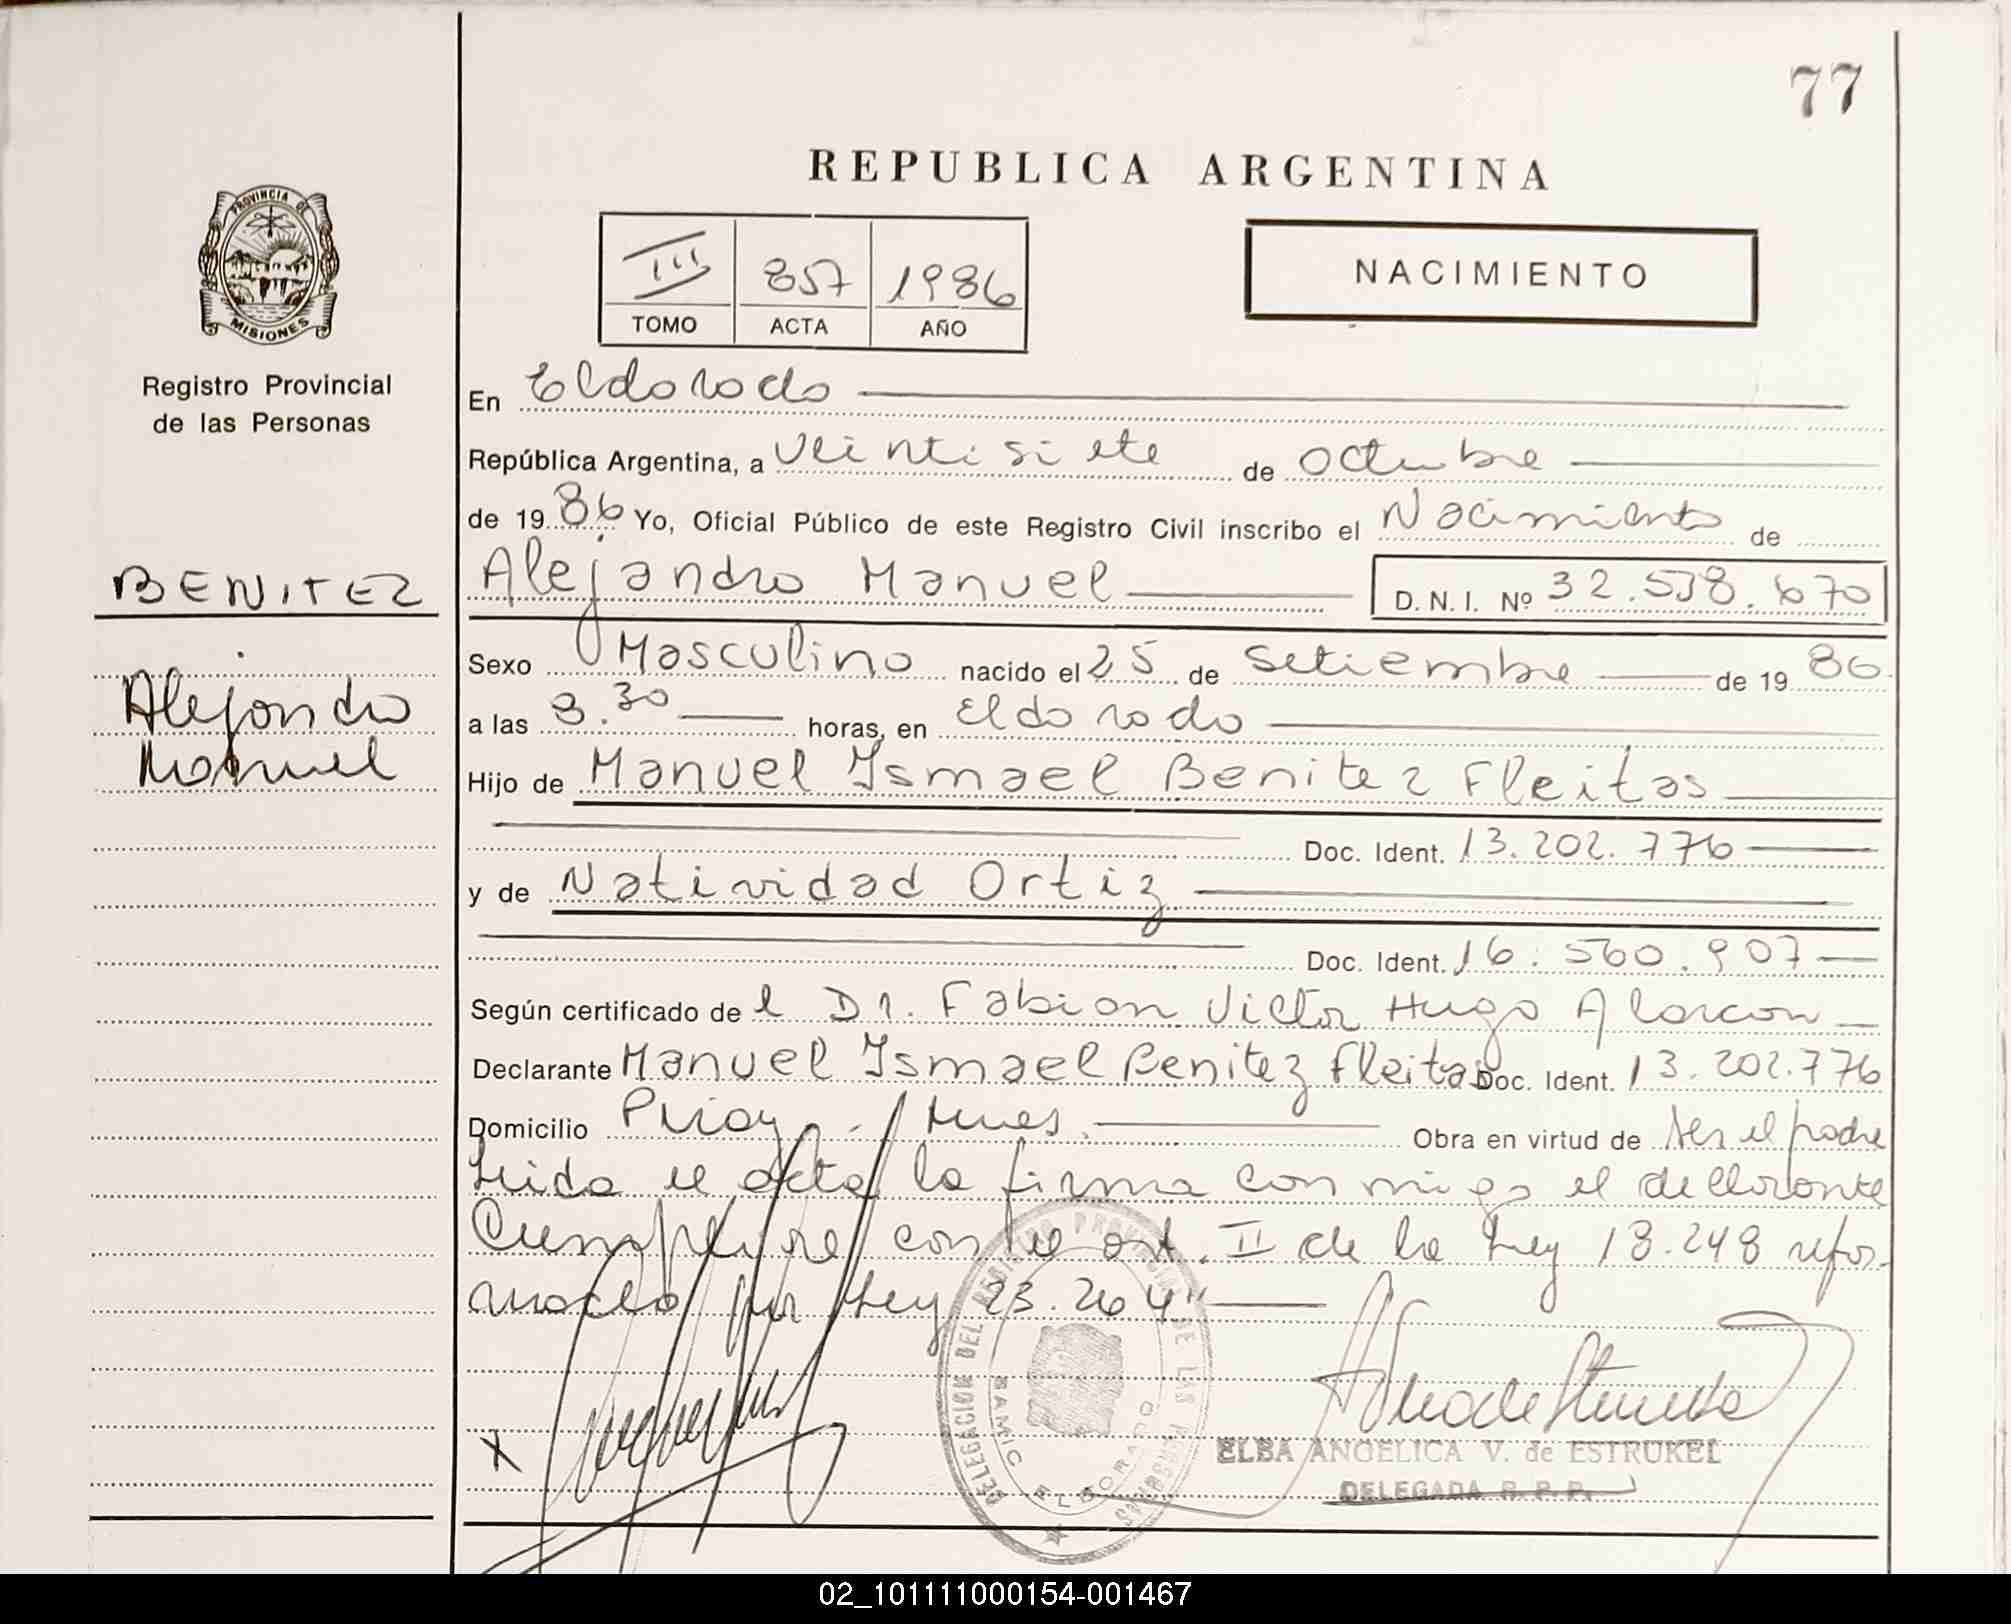 77
REPUBLICA ARGENTINA
PROVINCIA DE
MISIONES
Registro Provincial
de las Personas
III 857 1986
TOMO ACTA AÑO
NACIMIENTO
En Eldorado
República Argentina, a veintisiete de octubre
de 1986 Yo, Oficial Público de este Registro Civil inscribo el Nacimiento de
BENITEZ
Alejandro Manuel D.N.I. Nº 32.538.670
Alejandro
Manuel
Sexo Masculino nacido el 25 de Setiembre de 1986
a las 8.30 horas, en Eldorado
Hijo de Manuel Ismael Benitez Fleitas
Doc. Ident. 13.202.776
y de Natividad Ortiz
Doc. Ident. 16.560.907
Según certificado del Dr. Fabian Victor Hugo Alarcon
Declarante Manuel Ismael Benitez Fleitas Doc. Ident. 13.202.776
Domicilio Piray Obra en virtud de ser el padre
Leida el acta la firma conmigo el declarante
con el art. II de la Ley 18.248 refor-
mado por Ley 23.264"
DELEGACION DEL REGISTRO PROVINCIAL DE LAS PERSONAS
SAMIC ELDORADO
ELBA ANGELICA V. de ESTRUKEL
DELEGADA R.P.P.
02_101111000154-001467